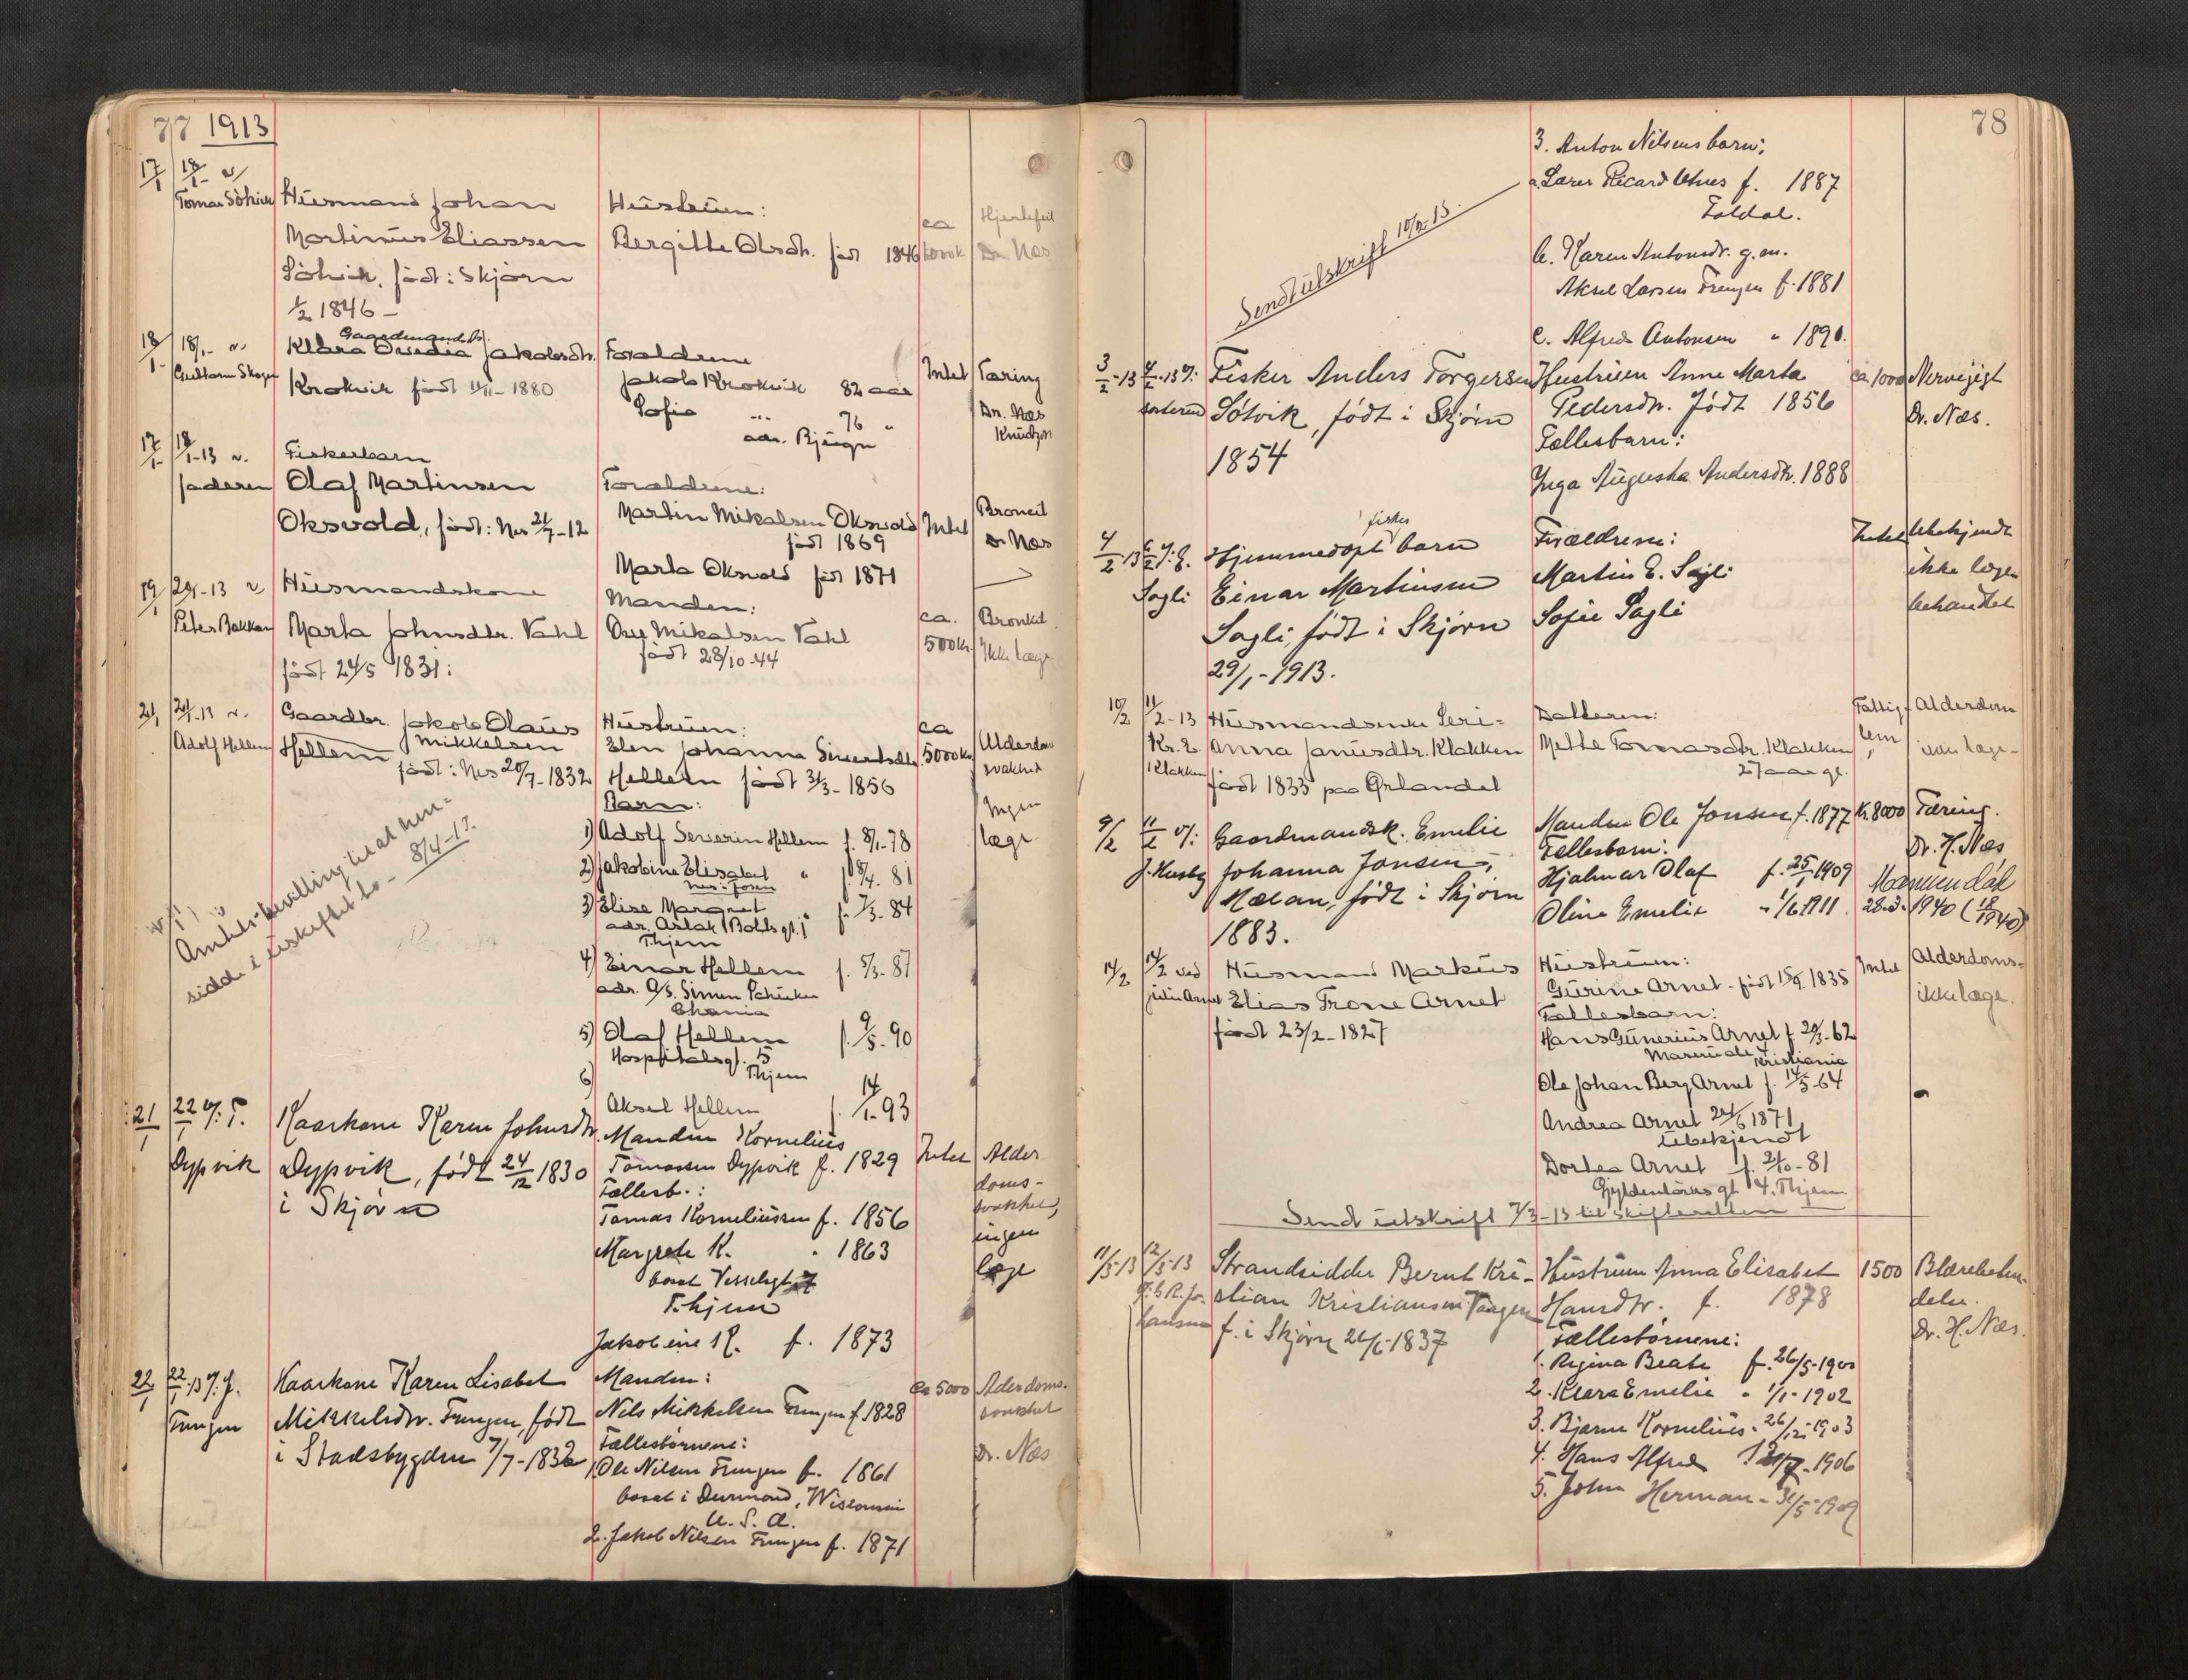 77 1913
17/1 18/1- v/
Tomas Söhvik
Husmand Johan
Martinus Eliassen
Söhvik, født i Skjørn
1/2 1846 -
Hustruen:
Bergitte Olsdr. født 1846
ca
Hjertefeil
Dr. Næs
18/1- 18/1- v.
Gaardmandsd.
Klara Ovedia Jakobsdtr.
Krokvik født 11/11- 1880
Forældrene
Jakob Krokvik 82 aar
Sofie " 76 "
adr. Bjugn
Intet
Tæring
Dr. Næs
Knudtzon
17/1- 18/1-13 v.
faderen
Fiskerbarn
Olaf Martinsen
Oksvold, født i Nes 21/7-12
Forældrene:
Martin Mikalsen Oksvold
født 1869
Marta Oksvold født 1871
Intet
Dr. Næs
19/1 20/1-13 v
Peter Bakken
Husmandskone
Marta Johnsdtr. Vahl
født 24/5 1831:
Manden:
Ove Mikalsen Vahl
født 28/10-44
ca.
500 kr.
Bronkit.
Ikke læge
21/1 21/1-13 v.
Adolf Hellem
Gaardbr. Jakob Olaus
Mikkelsen
Hellem
født i Nes 20/7-1832
Hustruen:
Elen Johanna Sivertsdtr.
Hellem født 31/3- 1856
Barn:
1) Adolf Severin Hellem f. 8/1-78
2) Jakobine Elisabet " f. 8/4. 81
3) Elise Margret " f. 7/3- 84
adr. Aslak Bolts gt.
Thjem
4) Einar Hellem f. 5/3- 87
5) Olaf Hellem f. 9/5- 90
Hospitalsgt. 5
Thjem
6)
Aksel Hellem f. 14/1- 93
ca
5000 kr
Alderdoms
svakhet
Ingen
læge
Amtsbevilling til at hen-
sidde i uskiftet bo - 8/4-13.
21/1 22/1 v/: T.
Dypvik
Kaarkone Karen Johnsdtr.
Dypvik, født 24/12 1830
i Skjørn
Manden Kornelius
Tomassen Dypvik f. 1829
Fællesb.:
Tomas Korneliussen f. 1856
Margrete K. " 1863
bosat
T.hjem
Jakobine K. f. 1873
Intet
Alder
doms-
svakhet,
ingen
læge
22/1 22/1-13 v/: J.
Frengen
Kaarkone Karen Lisabet
Mikkelsdtr. Frengen, født
i Stadsbygden 7/7- 1832
Manden:
Nils Mikkelsen Frengen f. 1828
Fællesbørnene:
1. Ole Nilsen Frengen f. 1861
bosat i Durmond, Wisconsin
U. S. A.
2. Jakob Nilsen Frengen f. 1871
ca 5000
Alderdoms-
svakhet
Dr. Næs
78
3. Anton Nilsens barn:
a. Lærer Ricard Uhres f. 1887
Foldal.
b. Karen Antonsdr. g. m.
Aksel Larsen Frengen f. 1881
c. Alfred Antonsen " 1890.
Sendt utskrift 10/2-13.
3/2-13 4/2-13 v/:
Fisker Anders Torgersen
Søtvik, født i Skjørn
1854
Hustruen Anne Marta
Pedersdr. født 1856
Fællesbarn:
Inga Augusta Andersdtr. 1888
ca. 1000
Nervegigt
Dr. Næs.
4/2-13 6/2 v/: E.
Sagli
fisker
Hjemmedøpt barn
Einar Martinsen
Sagli, født i Skjørn
29/1-1913.
Forældrene:
Martin E. Sagli
Sofie Sagli
Intet
Ubekjendt
ikke læge
behandlet
10/2 11/2-13
Kr. E.
Klakken
Husmandsenke Seri-
anna Janusdtr. Klakken
født 1833 paa Ørlandet
Datteren:
Mette Tomasdtr. Klakken
27 aar gl.
Fattig
lem
Alderdom
uten læge-
9/2 11/2 v/:
J. Husby
Gaardmandsk. Emelie
Johanna Jonsen,
Mælan, født i Skjørn
1883.
Manden Ole Jonsen f. 1877
Fællesbarn:
Hjalmar Olaf f. 25/1 1909
Oline Emelie " 1/6 1911.
kr. 8000
Tæring.
Dr. H. Næs
Mannen død
28-3-1940 (18/1940)
14/2 14/2 ved
Julie Arnet
Husmand Markus
Elias Trone Arnet
født 23/2- 1827
Hustruen:
Gurine Arnet - født 15/9. 1835
Fællesbarn:
Hans Gunerius Arnet f 20/3-62
Kristiania
Ole Johan Berg Arnet f. 14/5-64
Andrea Arnet 24/6 1871
Ubekjendt
Dortea Arnet f. 21/10-81
Gyldenløvesgt 4. Thjem.
Intet
Alderdoms-
ikke læge.
Sendt utskrift 7/3-13 til skifteretten
11/5-13 12/5-13
v/: b R. Jo-
hansen
Strandsidder Bernt Kri-
stian Kristiansen Vaagen
f. i Skjørn 26/6-1837
Hustruen Anna Elisabet
Hansdtr. f. 1878
Fællesbørnene:
1. Regina Beate f. 26/5-1900
2. Klara Emelie " 1/1- 1902
3. Bjarne Kornelius - 26/12-1903
4. Hans Alfred 1906
5. Johan Herman - 31/5-1909
1500
Blæreheten-
delse.
Dr. H. Næs.